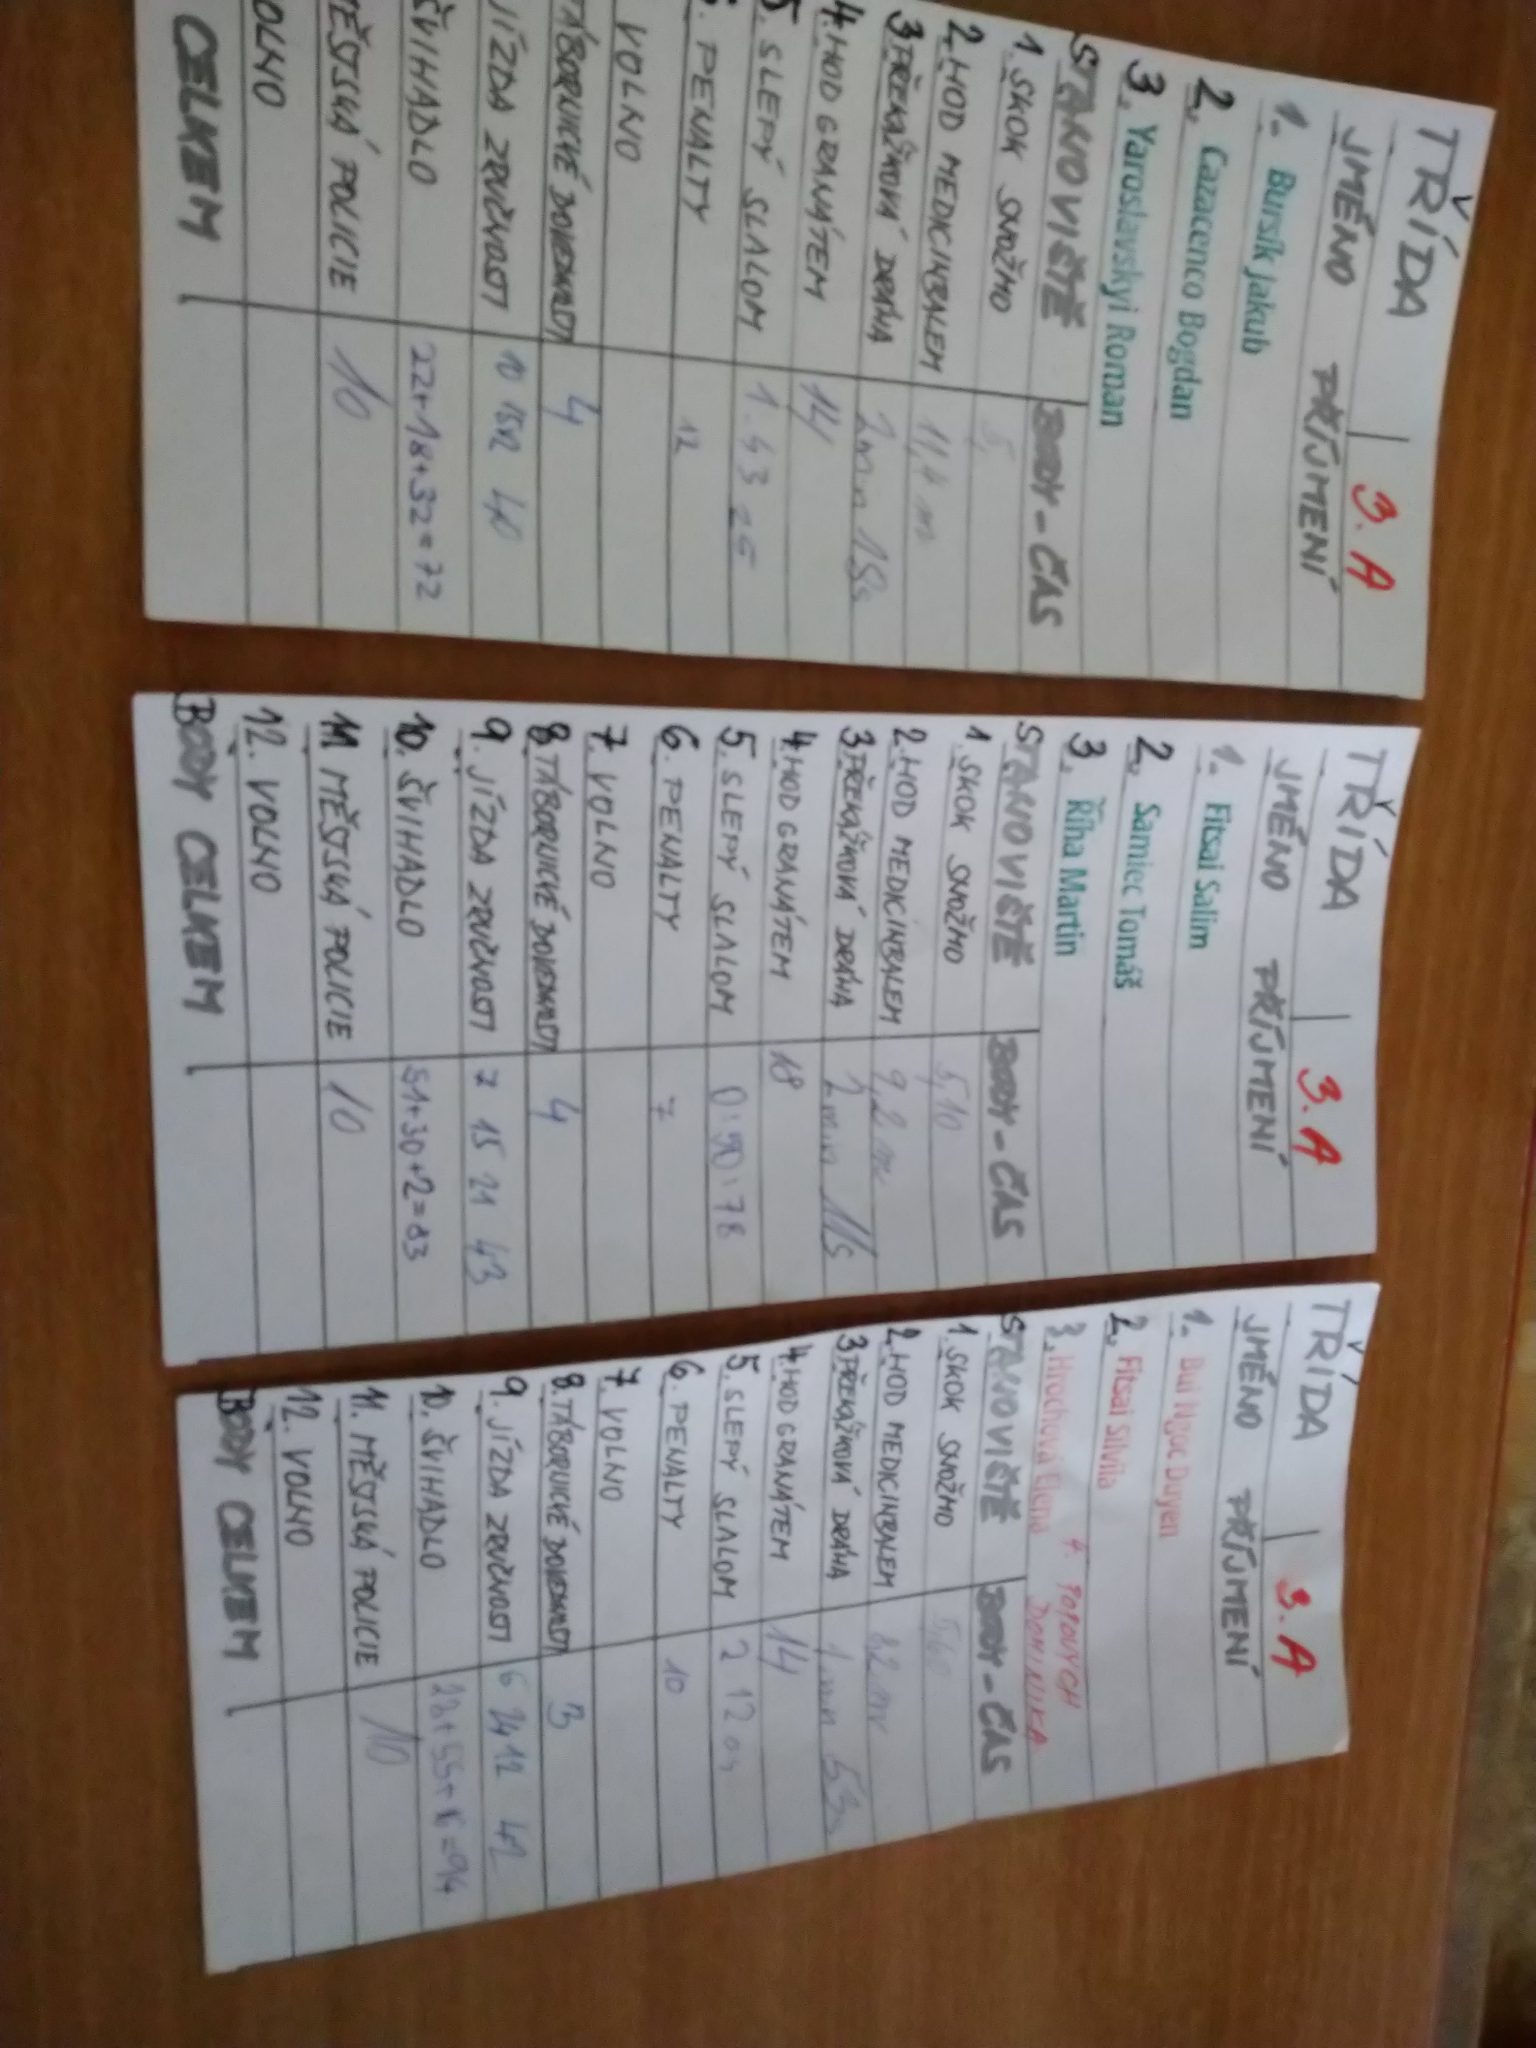 TŘÍDA 3. A
JMÉNO PŘÍJMENÍ
1. Bursík Jakub
2. Cazacenco Bogdan
3. Yaroslavskyi Roman
STANOVIŠTĚ BODY - ČAS
1. SKOK SNOŽMO 5,
2. HOD MEDICINBALEM 11,4 m
3 PŘEKÁŽKOVÁ DRÁHA 2 min 15s
4. HOD GRANÁTEM 14
5. SLEPÝ SLALOM 1. 43 25
6. PENALTY 12
VOLNO
TÁBORNICKÉ DOVEDNOSTI 4
JÍZDA ZRUČNOSTI 10 15 12 40
ŠVIHADLO 22+18+32=72
MĚSTSKÁ POLICIE 10
VOLNO
CELKEM
TŘÍDA 3. A
JMÉNO PŘÍJMENÍ
1. Fitsai Salim
2. Samiec Tomáš
3. Říha Martin
STANOVIŠTĚ BODY - ČAS
1. SKOK SNOŽMO 5,10
2. HOD MEDICINBALEM 9,2 m
3 PŘEKÁŽKOVÁ DRÁHA 2 min 11s
4. HOD GRANÁTEM 18
5. SLEPÝ SLALOM 0:50:78
6. PENALTY 7
7. VOLNO
8. TÁBORNICKÉ DOVEDNOSTI 4
9. JÍZDA ZRUČNOSTI 7 15 21 43
10. ŠVIHADLO 51+30+2=83
11. MĚSTSKÁ POLICIE 10
12. VOLNO
BODY CELKEM
TŘÍDA 3. A
JMÉNO PŘÍJMENÍ
1. Bui Ngoc Duyen
2. Fitsai Silviia
3. Hrochová Elena 4. POPOVYCH
DOMINIKA
STANOVIŠTĚ BODY - ČAS
1. SKOK SNOŽMO
2. HOD MEDICINBALEM
3 PŘEKÁŽKOVÁ DRÁHA 1 min 53s
4. HOD GRANÁTEM 14
5. SLEPÝ SLALOM 2 12
6. PENALTY 10
7. VOLNO
8. TÁBORNICKÉ DOVEDNOSTI 3
9. JÍZDA ZRUČNOSTI 6 24 12 42
10. ŠVIHADLO
11. MĚSTSKÁ POLICIE 10
12. VOLNO
BODY CELKEM